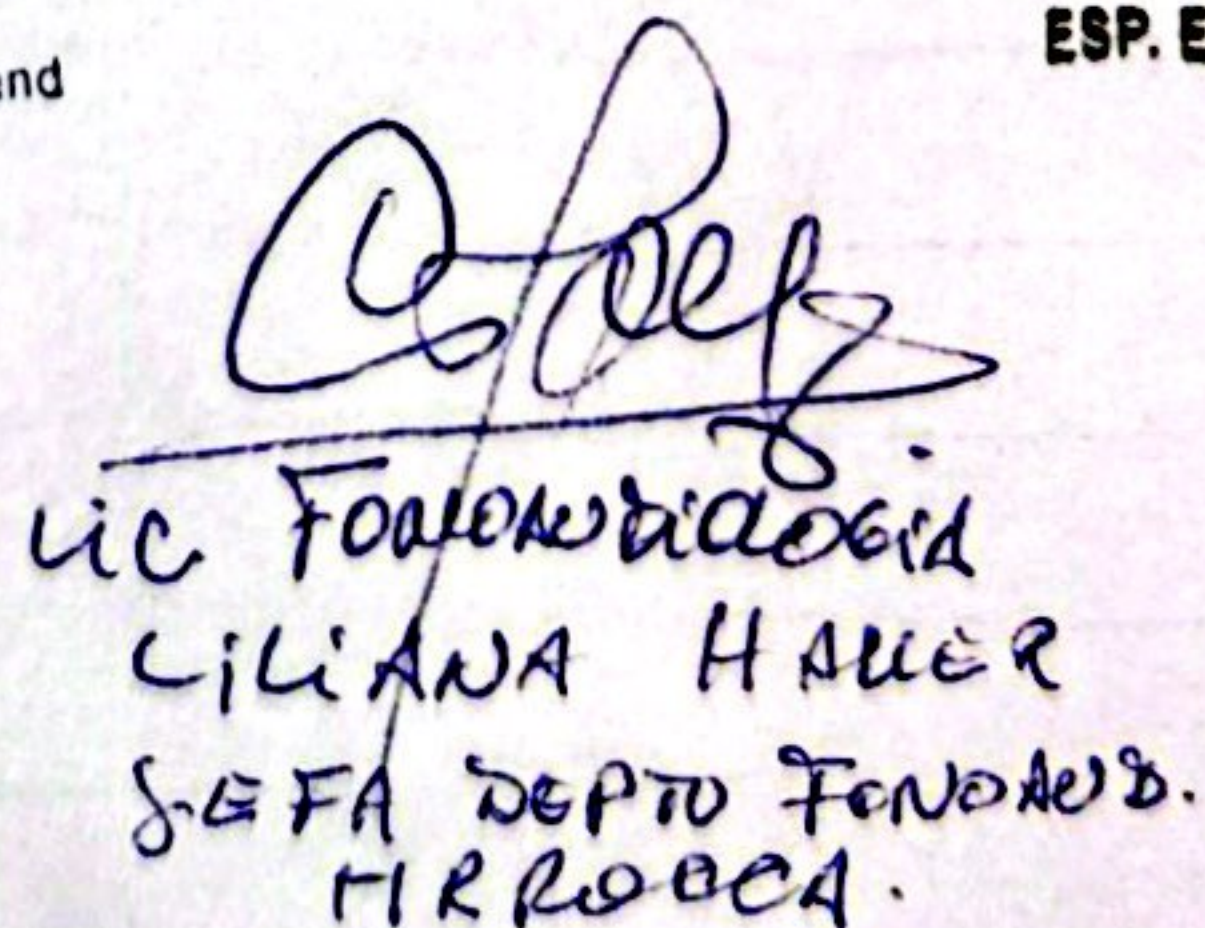 end
ESP. E
Lic Fonoaudiología
LILIANA HALLER
JEFA DEPTO FONOAUD.
H R ROCCA.